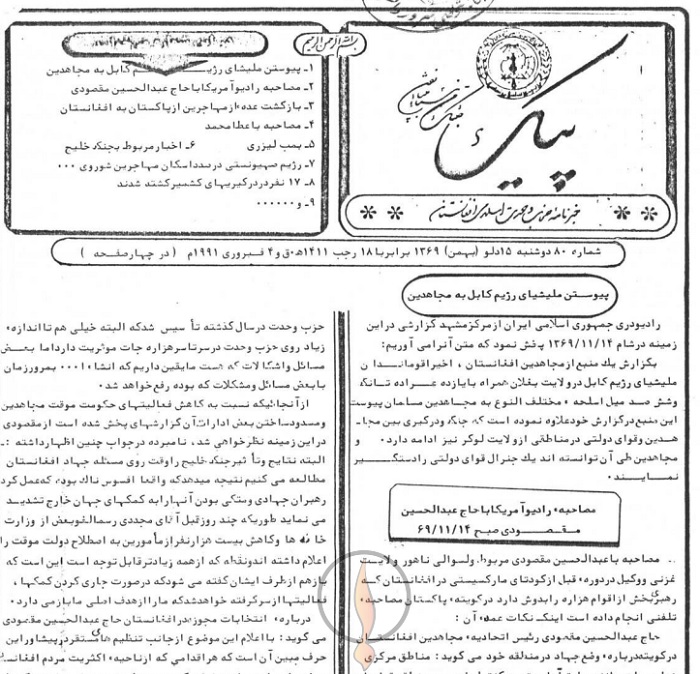 بسم الله الرحمن الرحیم
پیک
خبرنامه حزب وحدت اسلامی افغانستان
۱ـ پیوستن ملیشای رژیم کابل به مجاهدین
۲ـ مصاحبه رادیوآمریکاباحاج عبدالحسین مقصودی
۳ـ بازگشت عده‌ازمهاجرین ازپاکستان به افغانستان
۴ـ مصاحبه باعطامحمد
۵ـ بمب لیزری ۶ـ اخبارمربوط بجنگ خلیج
۷ـ رژیم صهیونستی درصدداسکان مهاجرین شوروی ۰۰۰
۸ـ ۱۷ نفردردرگیریهای کشمیرکشته شدند
۹ـ و۰۰۰۰۰۰
شماره ۸۰ دوشنبه ۱۵دلو (بهمن) ۱۳۶۹ برابربا ۱۸ رجب ۱۴۱۱ه‍۰ق و۴ فبروری ۱۹۹۱م ( در چهارصفحه )
پیوستن ملیشیای رژیم کابل به مجاهدین
رادیودری جمهوری اسلامی ایران ازمرکزمشهد گزارشی دراین
زمینه درشام ۱۳۶۹/۱۱/۱۴ پخش نمود که متن آنرامی آوریم:
بگزارش یک منبع ازمجاهدین افغانستان ، اخیرا قوماندان
ملیشیای رژیم کابل درولایت بغلان همراه بایازده عراده تانک
وشش صد میل اسلحه مختلف النوع به مجاهدین مسلمان پیوست
این منبع درگزارش خودعلاوه نموده است که جنگ ودرگیری بین مجا
هدین وقوای دولتی درمناطقی ازولایت لوگر نیز ادامه دارد۰ و
مجاهدین طی آن توانسته اند یک جنرال قوای دولتی رادستگیر
نمایند۰
مصاحبه رادیوآمریکاباحاج عبدالحسین
مقصودی صبح ۶۹/۱۱/۱۴
مصاحبه باعبدالحسین مقصودی مربوط ولسوالی ناهور ولایت
غزنی ووکیل دردوره قبل ازکودتای مارکسیستی درافغانستان که
رهبربخش ازاقوام هزاره رابدوش دارد درکویته پاکستان مصاحبه
تلفنی انجام داده است اینک نکات عمده آن :
حاج عبدالحسین مقصودی رئیس اتحادیه مجاهدین افغانستان
درکویته درباره وضع جهاد درمنطقه خود می گوید: مناطق مرکزی
حزب وحدت درسال گذشته تأ سیس شدکه البته خیلی هم تااندازه
زیاد روی حزب وحدت درسرتاسرهزاره جات موثریت داردامابعض
مسائل واشکالات که هست مایقین داریم که انشا۰۰۰۱ بمرورزمان
بابعض مسائل ومشکلات که بوده رفع خواهد شد۰
ازآنجائیکه نسبت به کاهش فعالیتهای حکومت موقت مجاهدین
ومسدودساختن بعض ادارات آن گزارشهای پخش شده است ازمقصودی
دراین زمینه نظرخواهی شد، نامبرده درجواب چنین اظهارداشته :
البته نتایج وتأ ثیرجنگ خلیج راوقت روی مسئله جهاد افغانستان
مطالعه می کنیم نتیجه میدهدکه واقعا افسوس ناک بوده که عمل کرد
رهبران جهادی وستکی بودن آنهارابه کمکهای جهان خارج تشدید
می نماید طوریکه چند روزقبل آقای مجددی رسما لغوبعض از وزارت
خانه ها وکاهش بیست هزارنفرازمأمورین به اصطلاح دولت موقت را
اعلام داشته اندونقطه که ازهمه زیادترقابل توجه است این است که
بازهم ازطرف ایشان گفته می شودکه درصورت جاری کردن کمکها ،
فعالیتهاازسرگرفته خواهدشدکه ماراازهدف اصلی مابازمی دارد۰
درباره انتخابات مجوزه درافغانستان حاج عبدالحسین مقصودی
می گوید : بااعلام این موضوع ازجانب تنظیم های مستقردرپیشاوراین
حرف مبین آن است که هراقدامی که ازناحیه اکثریت مردم افغانستان